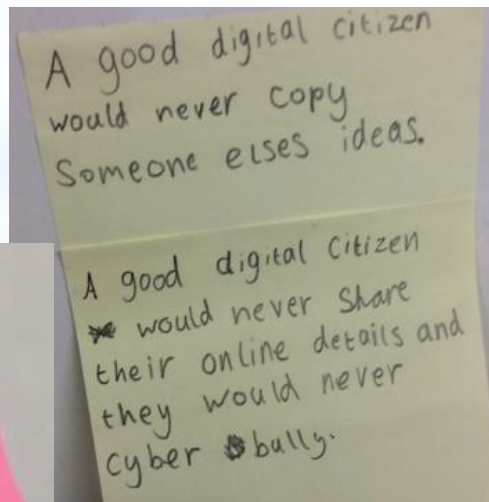 A good digital citizen
would never copy
Someone elses ideas.
A good digital Citizen
would never Share
their online details and
they would never
cyber bully.